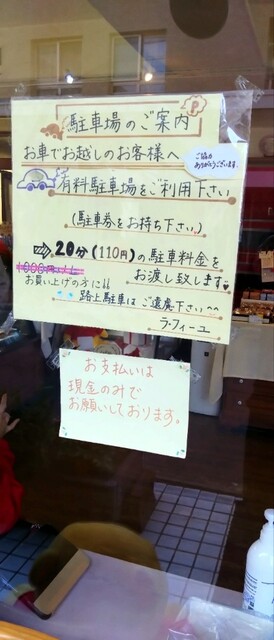 駐車場のご案内
お車でお越しのお客様へ
ご協力
ありがとうございます。
有料駐車場をご利用下さい
(駐車券をお持ち下さい。)
⇨ 20分(110円)の駐車料金を
1000円以上
お買い上げの方に!!
お渡し致します
路上駐車はご遠慮下さい^^
ラ・フィーユ
お支払いは
現金のみで
お願いしております。